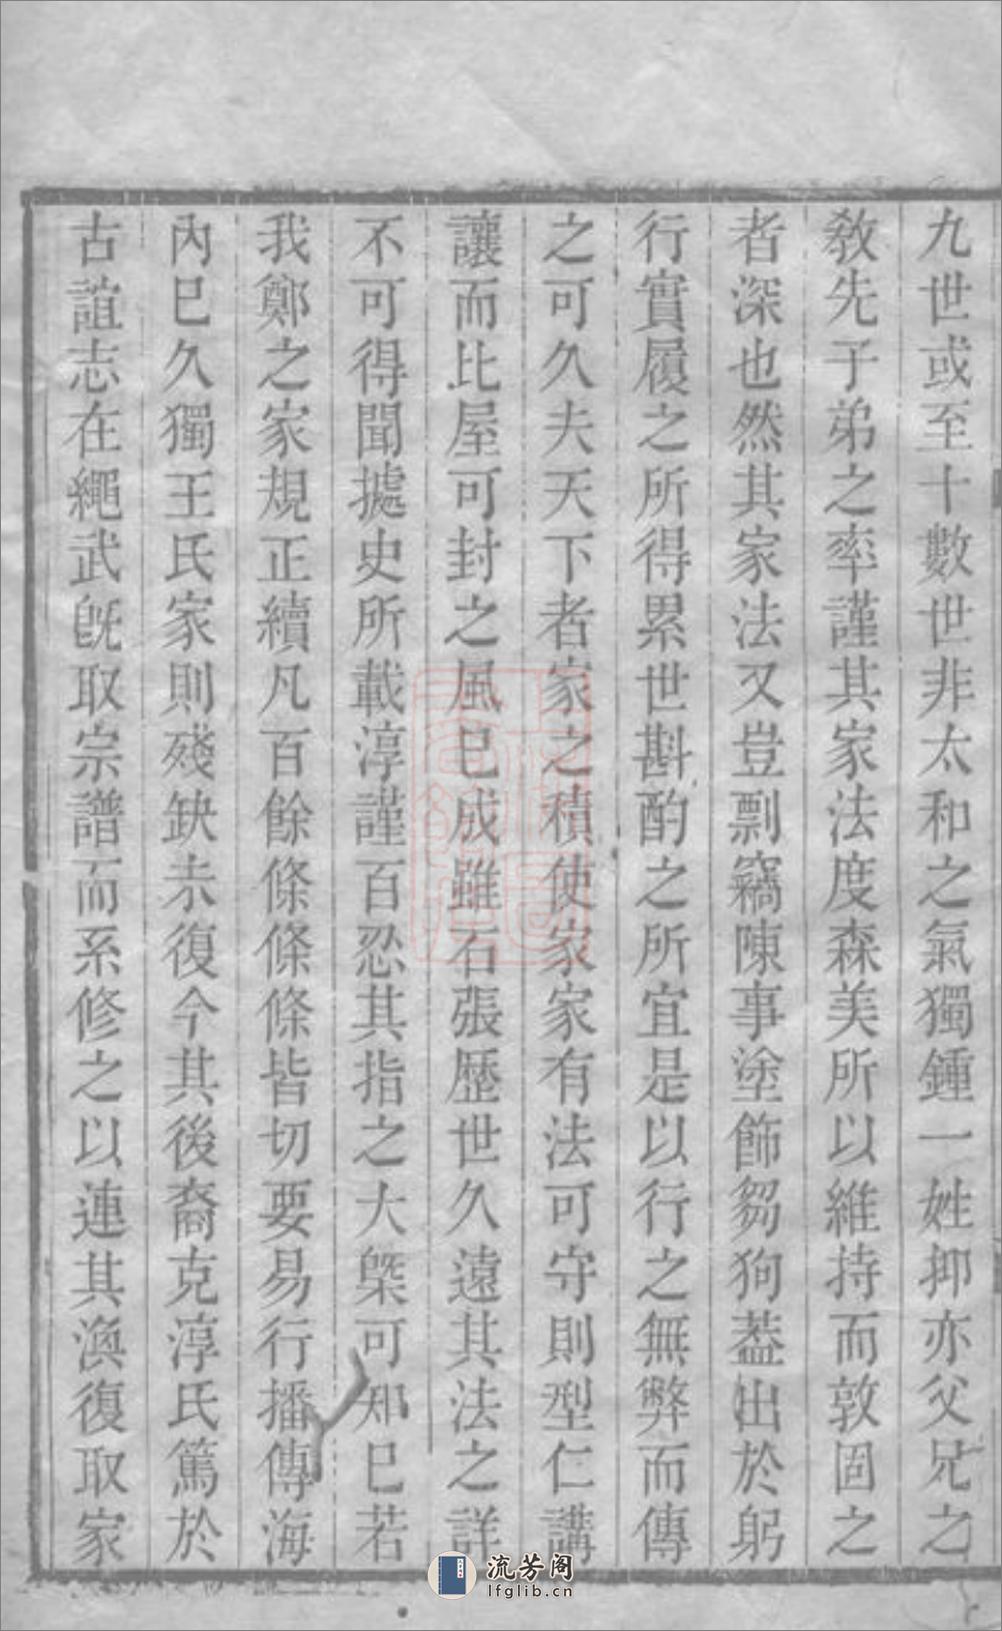 九世或至十數世非太和之氣獨鍾一姓抑亦父兄之
教先子弟之率謹其家法度森美所以維持而敦固之
者深也然其家法又豈剽竊陳事塗飾芻狗葢出於躬
行實履之所得累世斟酌之所宜是以行之無弊而傳
之可久夫天下者家之積使家家有法可守則型仁講
讓而比屋可封之風已成雖石張歷世久遠其法之詳
不可得聞據史所載淳謹百忍其指之大槩可知已若
我鄭之家規正續凡百餘條條條皆切要易行播傳海
內已久獨王氏家則殘缺未復今其後裔克淳氏篤於
古誼志在繩武旣取宗譜而系修之以連其渙復取家
流芳阁
lfglib.cn